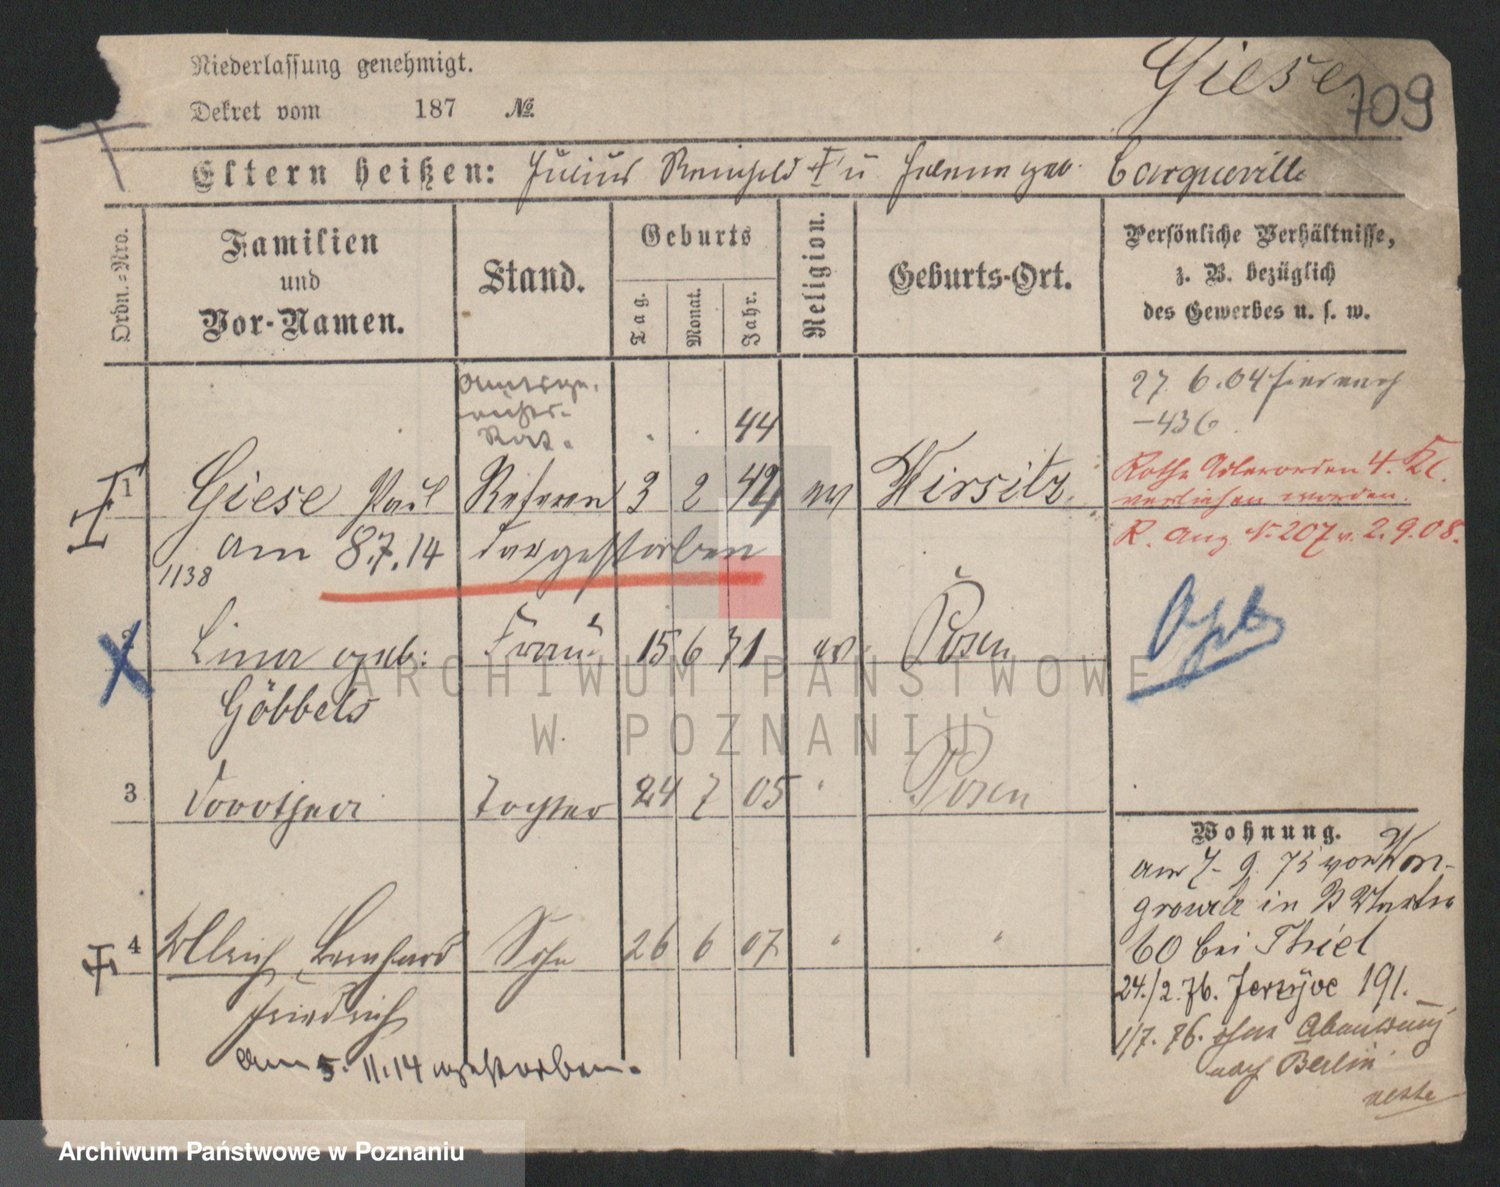 Niederlassung genehmigt.
Giese
709
Dekret vom 187 №
Eltern heißen: Julius Reinhold † u Helene geb. Carqueville
Ordn.-Nro.
Familien
und
Vor-Namen.
Stand.
Geburts
Tag.
Monat.
Jahr.
Religion.
Geburts-Ort.
Persönliche Verhältnisse,
z. B. bezüglich
des Gewerbes u. s. w.
27. 6. 04
436
Amtsge-
richts-
Rat.
44
1 Giese Paul Referen 3 2 42 ev Wirsitz.
Rothe Adlerorden 4. Kl.
verliehen worden.
R. Anz № 207 v. 2.9.08.
am 8.7.14 gestorben
1138
2 Lina geb: Frau 15 6 71 ev. Posen
Göbbels
3 Dorothea Tochter 24 7 05 " Posen
4 Ullrich Bernhard Sohn 26 6 07 " "
Friedrich
am 5. 11. 14 gestorben.
Wohnung.
am 7. 9. 75 von Won-
growitz in
60 bei Thiel
24./2. 76. Jerzyce 191.
1/7. 76. ohne Abmeldung
nach Berlin
ARCHIWUM PAŃSTWOWE
W POZNANIU
Archiwum Państwowe w Poznaniu